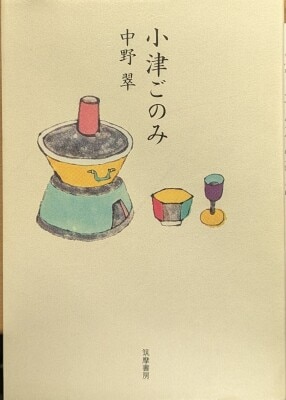 小津ごのみ
中野 翠
筑摩書房